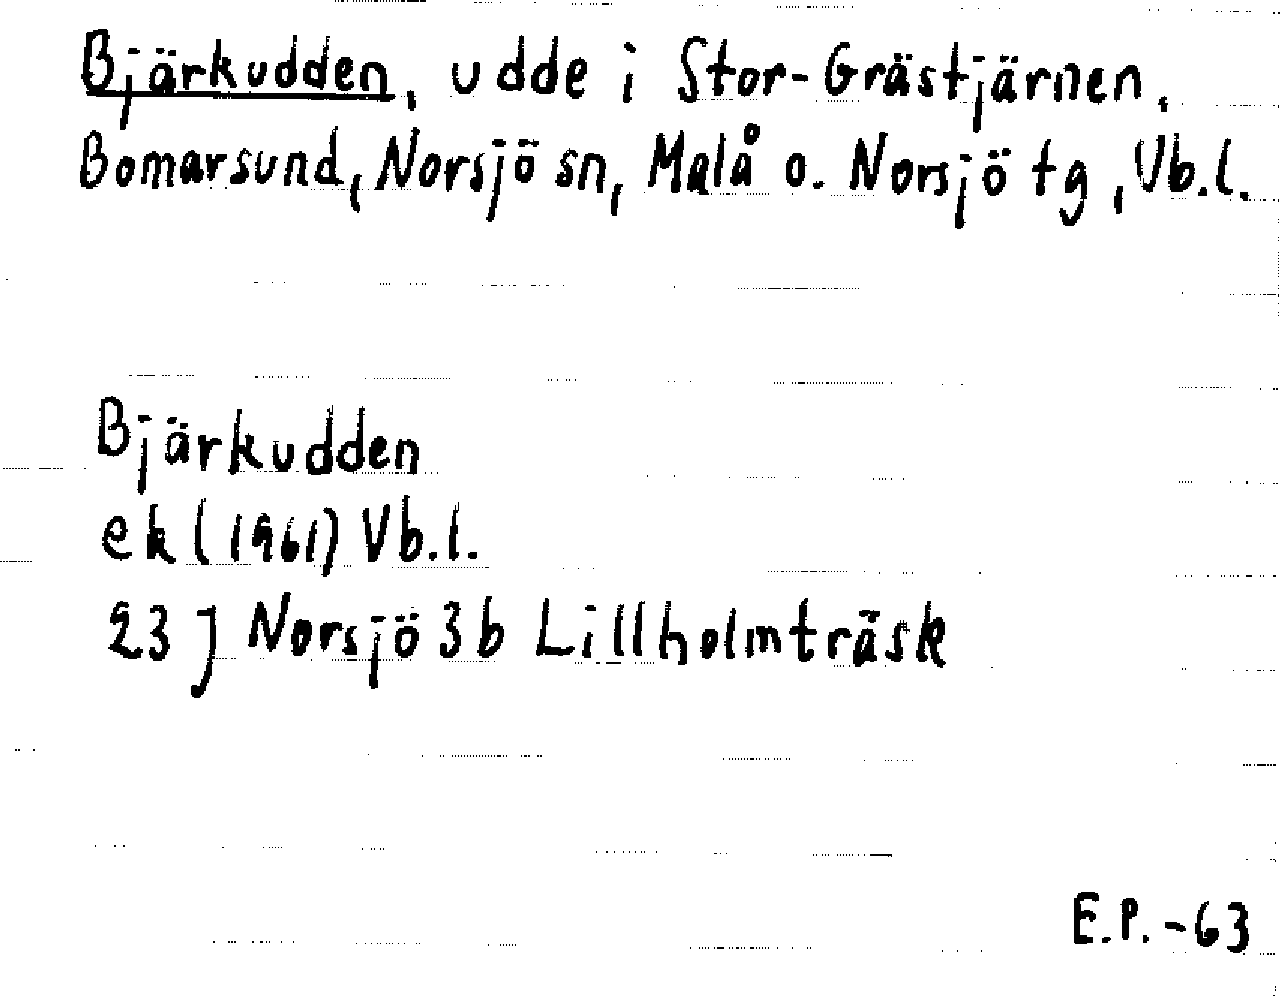 Bjärkudden, udde i Stor-Grästjärnen,
Bomarsund, Norsjö sn, Malå o. Norsjö tg, Vb.l.
Bjärkudden
ek (1961) Vb.l.
23 J Norsjö 3b Lillholmträsk
E.P. -63